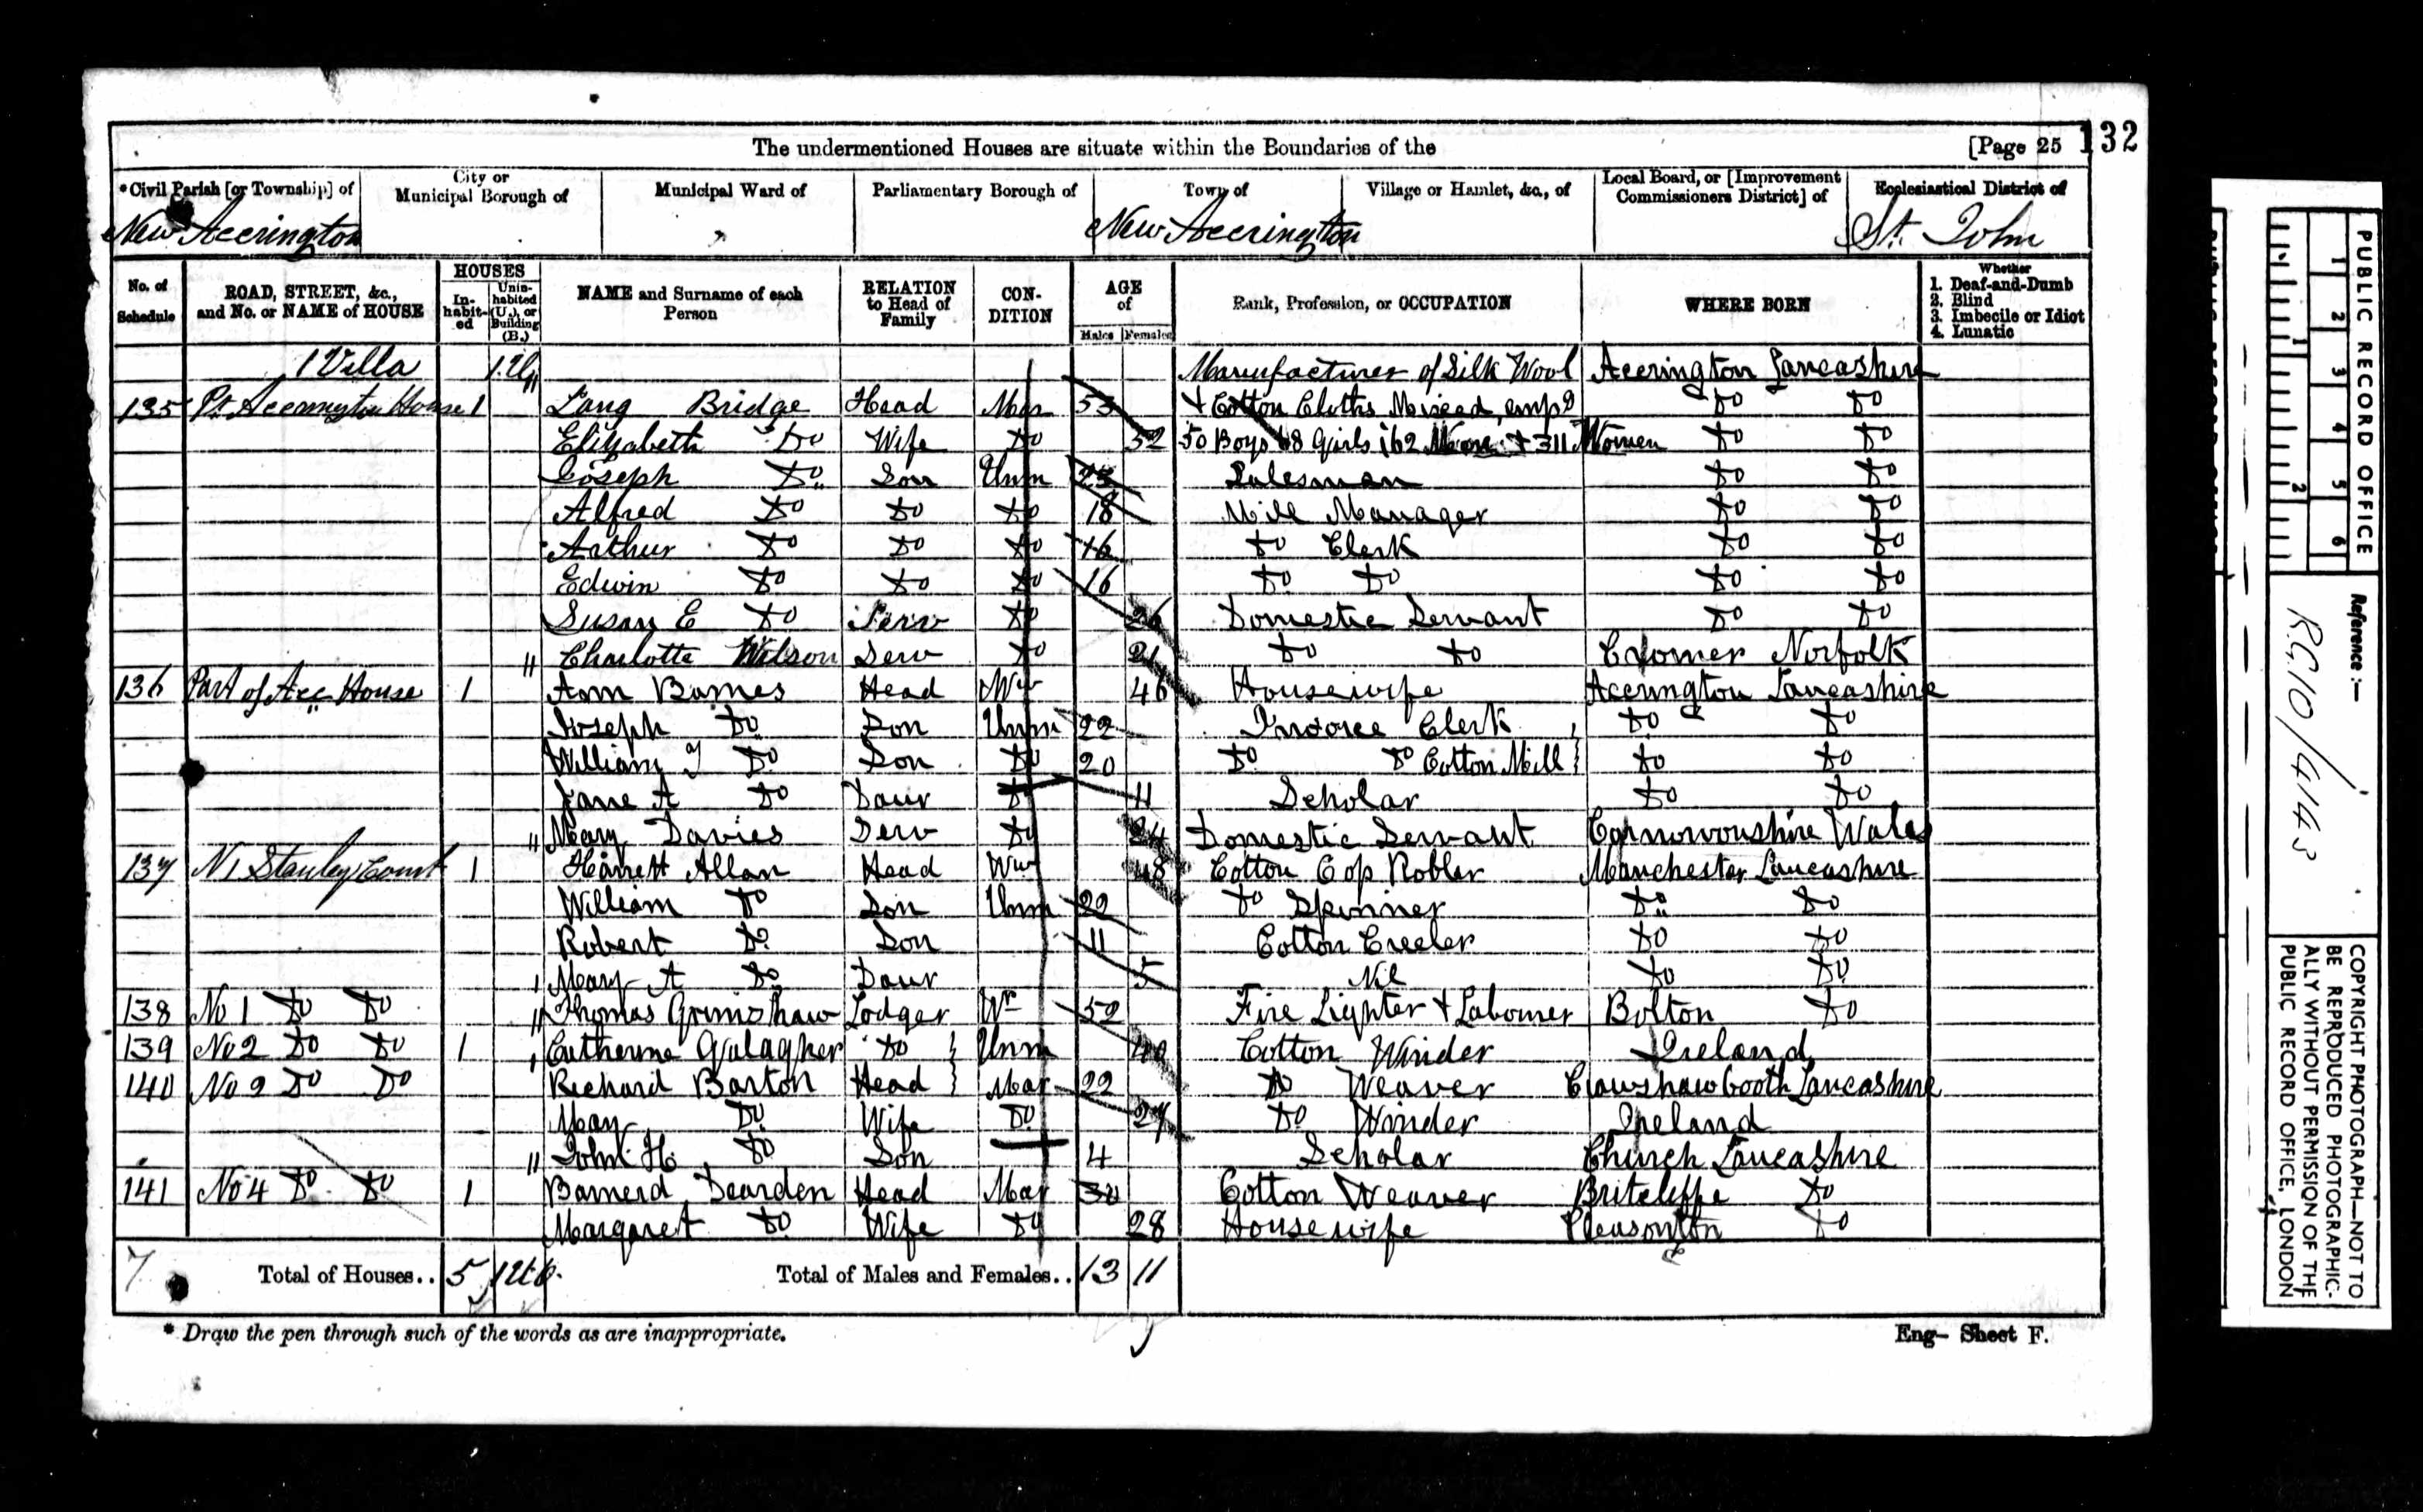 The undermentioned Houses are situate within the Boundaries of the [Page 25 132
*Civil Parish [or Township] of City or Municipal Borough of Municipal Ward of Parliamentary Borough of Town of Village or Hamlet, &c., of Local Board, or [Improvement Commissioners District] of Ecclesiastical District of
New Accrington New Accrington St. John
No. of Schedule ROAD, STREET, &c., and No. or NAME of HOUSE HOUSES In-habit-ed Unin-habited (U.), or Building (B.) NAME and Surname of each Person RELATION to Head of Family CON-DITION AGE of Males Females Rank, Profession, or OCCUPATION WHERE BORN Whether 1. Deaf-and-Dumb 2. Blind 3. Imbecile or Idiot 4. Lunatic
1 Villa 1 U Manufacturer of Silk Wool Accrington Lancashire
135 Pt Accrington House 1 Lang Bridge Head Mar 53 + Cotton Cloths Mixed, empg Do Do
Elizabeth Do Wife Do 52 50 Boys 68 Girls 162 Men + 311 Women Do Do
Joseph Do Son Unm 23 Salesman Do Do
Alfred Do Do Do 18 Mill Manager Do Do
Arthur Do Do Do 16 Do Clerk Do Do
Edwin Do Do Do 16 Do Do Do Do
Susan E Do Serv Do 26 Domestic Servant Do Do
Charlotte Wilson Serv Do 21 Do Do Cromer Norfolk
136 Part of Acc House 1 Ann Barnes Head Ww 46 Housewife Accrington Lancashire
Joseph Do Son Unm 22 Invoice Clerk Do Do
William Do Son Do 20 Do Do Cotton Mill Do Do
Jane A Do Daur Do 11 Scholar Do Do
Mary Davies Serv Do 24 Domestic Servant Carnorvonshire Wales
137 N 1 Stanley Court 1 Harrett Allan Head Ww 48 Cotton Cop Robler Manchester Lancashire
William Do Son Unm 22 Do Spinner Do Do
Robert Do Son 11 Cotton Creeler Do Do
Mary A Do Daur 5 Nil Do Do
138 No 1 Do Do Thomas Grimshaw Lodger Wr 52 Fire Lighter + Labourer Bolton Do
139 No 2 Do Do 1 Catherine Galagher Do Unm 40 Cotton Winder Ireland
140 No 2 Do Do Richard Barton Head Mar 22 Do Weaver Crawshawbooth Lancashire
Mary Do Wife Do 27 Do Winder Ireland
John H. Do Son 4 Scholar Church Lancashire
141 No 4 Do Do 1 Barnerd Dearden Head Mar 30 Cotton Weaver Britcliffe Do
Margaret Do Wife Do 28 Housewife Pleasonton Do
7 Total of Houses.. 5 1 U Total of Males and Females.. 13 11
* Draw the pen through such of the words as are inappropriate. Eng- Sheet F.
PUBLIC RECORD OFFICE
1 2 3 4 5 6
1 2
Reference:-
RG10/4143
COPYRIGHT PHOTOGRAPH—NOT TO
BE REPRODUCED PHOTOGRAPHIC-
ALLY WITHOUT PERMISSION OF THE
PUBLIC RECORD OFFICE, LONDON